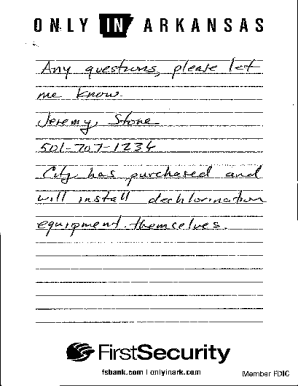 ONLY IN ARKANSAS
Any questions, please let
me know.
Jeremy, Stone
501-707-1234
City has purchased and
will install dechlorination
equipment themselves.
First Security
fsbank.com | onlyinark.com
Member FDIC